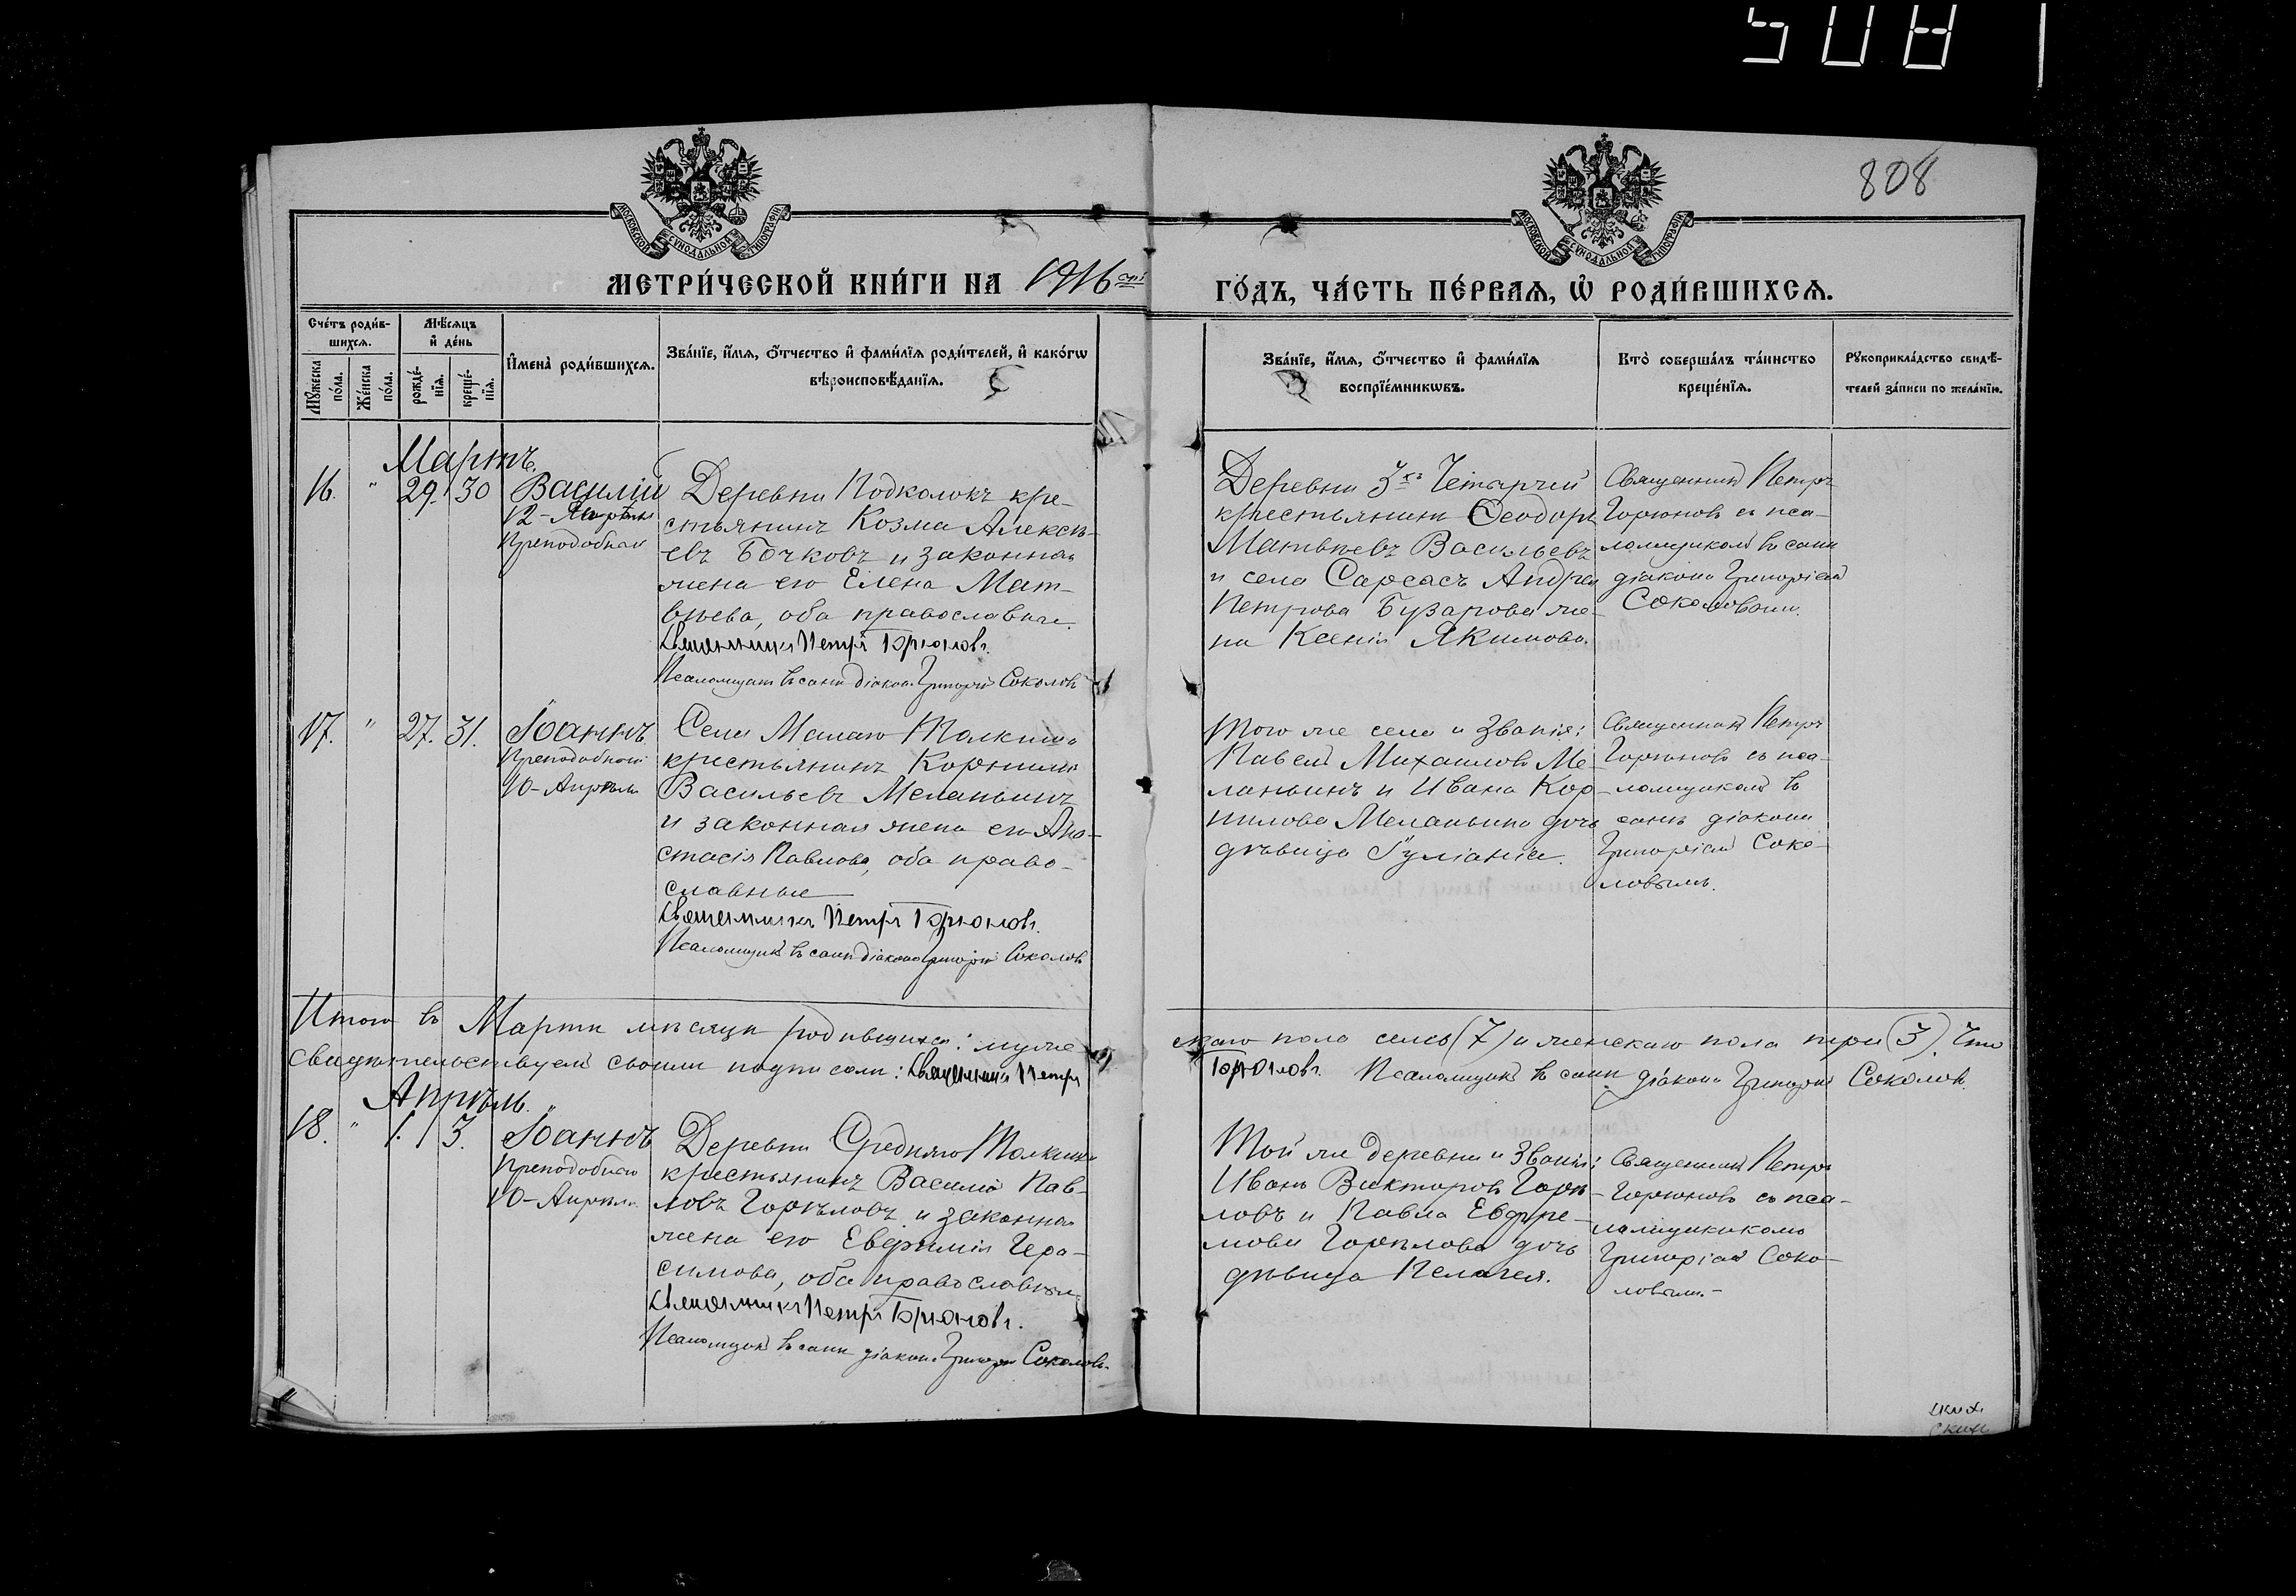 808
МОСКОВСКОЙ СѴНОДАЛЬНОЙ ТИПОГРАФІИ
МОСКОВСКОЙ СѴНОДАЛЬНОЙ ТИПОГРАФІИ
МЕТРИ́ЧЕСКОЙ КНИ́ГИ НА 1916
ГО́ДЪ, ЧА́СТЬ ПЕ́РВАѦ, Ѡ РОДИ́ВШИХСѦ.
Сче́тъ роди́в-
шихсѧ.
Мꙋ́жеска
по́ла.
Же́нска
по́ла.
Мѣ́сѧцъ
и҆ де́нь
рожде́-
нїѧ.
креще́-
нїѧ.
И҆мена̀ роди́вшихсѧ.
Зва́нїе, и҆́мѧ, ѻ҆́тчество и҆ фами́лїѧ роди́телей, и҆ како́гѡ
вѣроисповѣ́данїѧ.
Зва́нїе, и҆́мѧ, ѻ҆́тчество и҆ фами́лїѧ
воспрїе́мникѡвъ.
Кто̀ соверша́лъ та́инство
креще́нїѧ.
Рꙋкоприкла́дство свидѣ́-
телей за́писи по жела́нїю.
Мартъ.
16. " 29. 30 Василій
12 - Апрѣля
Преподобнаго
Деревни Подколокъ кре-
стьянинъ Козма Алексѣ-
евъ Бочковъ и законная
жена его Елена Мат-
вѣева, оба православные.
Священникъ Петръ Горюновъ.
Псаломщикъ въ санѣ діакона Григорій Соколовъ
Деревни 3хъ Четарчей
крестьянинъ Ѳеодоръ
Матвѣевъ Васильевъ
и села Сарсасъ Андрея
Петрова Бузарова же-
на Ксенія Якимова.
Священникъ Петръ
Горюновъ съ пса-
ломщикомъ въ санѣ
діакона Григоріемъ
Соколовымъ.
17. " 27. 31. Іоаннъ
Преподобнаго
10 - Апрѣля
Села Малаго Толкиша
крестьянинъ Корнилій
Васильевъ Меланьинъ
и законная жена его Ана-
стасія Павлова, оба право-
славные
Священникъ Петръ Горюновъ.
Псаломщикъ въ санѣ діакона Григорій Соколовъ
Того же села и званія:
Павелъ Михаиловъ Ме-
ланьинъ и Ивана Кор-
нилова Меланьина дочь
дѣвица Іуліанія.
Священникъ Петръ
Горюновъ съ пса-
ломщикомъ въ
санѣ діакона
Григоріемъ Соко-
ловымъ.
Итого въ Мартѣ мѣсяцѣ родившихся: муже-
скаго пола семь (7) и женскаго пола три (3). Что
свидѣтельствуемъ своими подписями: Священникъ Петръ
Горюновъ. Псаломщикъ въ санѣ діакона Григорій Соколовъ.
Апрѣль.
18. " 1. 3. Іоаннъ
Преподобнаго
10 - Апрѣля.
Деревни Средняго Толкиша
крестьянинъ Василій Пав-
ловъ Горѣловъ и законная
жена его Евфимія Гера-
симова, оба православные.
Священникъ Петръ Горюновъ.
Псаломщикъ въ санѣ діакона Григорій Соколовъ.
Той же деревни и званія:
Иванъ Викторовъ Горѣ-
ловъ и Павла Ефре-
мова Горѣлова дочь
дѣвица Пелагея.
Священникъ Петръ
Горюновъ съ пса-
ломщикикомъ
Григоріемъ Соко-
ловымъ.-